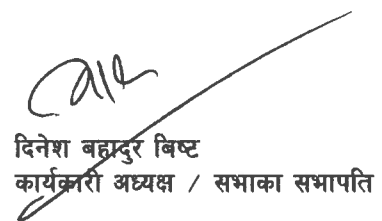 दिनेश बहादुर बिष्ट
कार्यकारी अध्यक्ष / सभाका सभापति